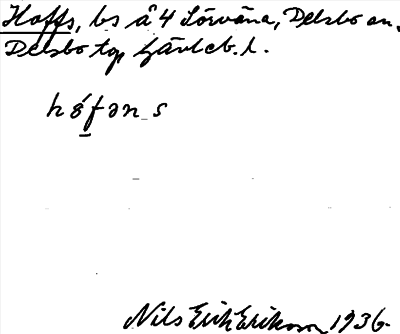 Hoffs, bs å 4 Lörväna, Delsbo sn.
Delsbo tg, Gävleb. l.
hófən_s
Nils Erik Erikson 1936.